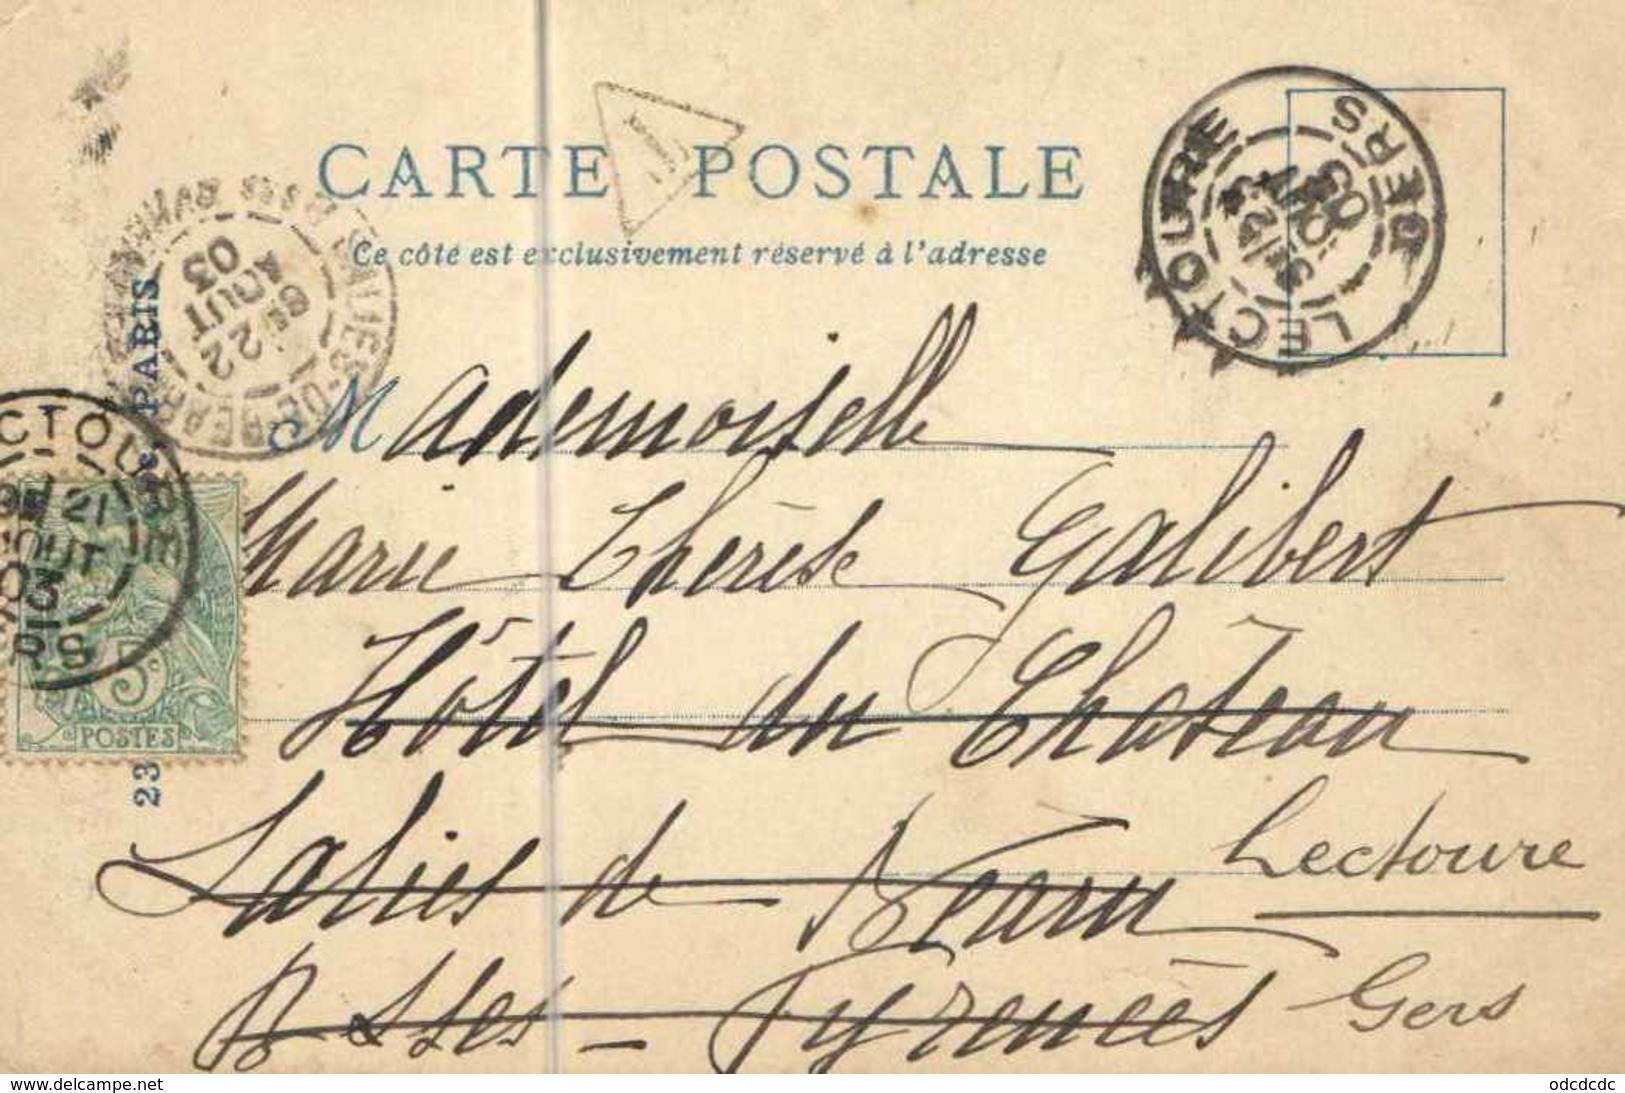 CARTE POSTALE
Ce côté est exclusivement réservé à l'adresse
LECTOURE
GERS
22
AOUT
03
PARIS
CTOURE
21
OUT
03
RS
5c
POSTES
23
Mademoiselle
Marie Thérèse Galibert
Hôtel du Château
Salies de Béarn Lectoure
Bsses-Pyrénées Gers
https://www.delcampe.net
odcdcdc